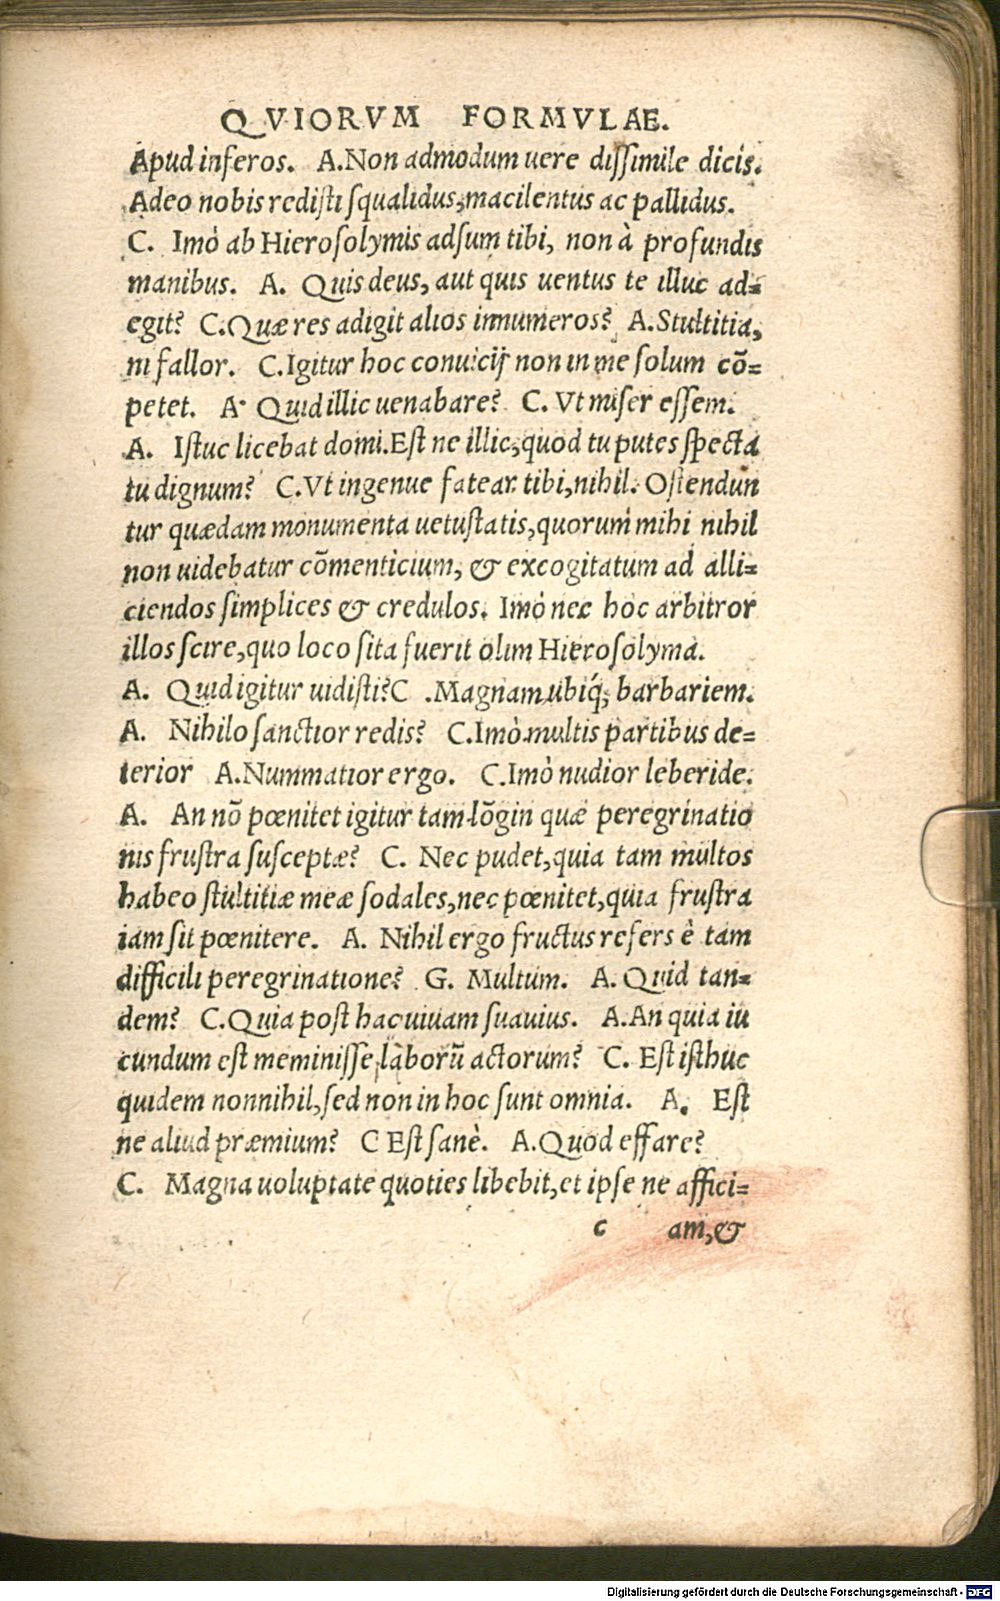 QVIORVM FORMVLAE.
Apud inferos. A.Non admodum uere dissimile dicis.
Adeo nobis redisti squalidus,macilentus ac pallidus.
C. Imò ab Hierosolymis adsum tibi, non à profundis
manibus. A. Quis deus, aut quis uentus te illuc ad=
egit? C.Quæ res adigit alios innumeros? A.Stultitia,
ni fallor. C.Igitur hoc conuicij non in me solum cō=
petet. A. Quid illic uenabare? C. Vt miser essem.
A. Istuc licebat domi.Est ne illic,quod tu putes specta
tu dignum? C.Vt ingenue fatear tibi,nihil. Ostendun
tur quædam monumenta uetustatis,quorum mihi nihil
non uidebatur cōmenticium, & excogitatum ad alli=
ciendos simplices & credulos. Imò nec hoc arbitror
illos scire,quo loco sita fuerit olim Hierosolyma.
A. Quid igitur uidisti?C .Magnam ubiq́; barbariem.
A. Nihilo sanctior redis? C.Imò multis partibus de=
terior A.Nummatior ergo. C.Imò nudior leberide.
A. An nō pœnitet igitur tam lōgin quæ peregrinatio
nis frustra susceptæ? C. Nec pudet,quia tam multos
habeo stultitiæ meæ sodales,nec pœnitet,quia frustra
iam sit pœnitere. A. Nihil ergo fructus refers è tam
difficili peregrinatione? G. Multum. A. Quid tan=
dem? C.Quia post hac uiuam suauius. A.An quia iu
cundum est meminisse laborū actorum? C. Est isthuc
quidem nonnihil,sed non in hoc sunt omnia. A. Est
ne aliud præmium? C Est sanè. A.Quod effare?
C. Magna uoluptate quoties libebit,et ipse ne affici=
c am,&
Digitalisierung gefördert durch die Deutsche Forschungsgemeinschaft - DFG